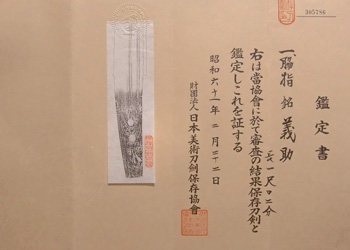 305786
鑑定書
一、脇指 銘 義助
長一尺〇二分
右は當協會に於て審査の結果保存刀剣と
鑑定しこれを証する
昭和六十一年二月二十二日
財團法人日本美術刀剣保存協會